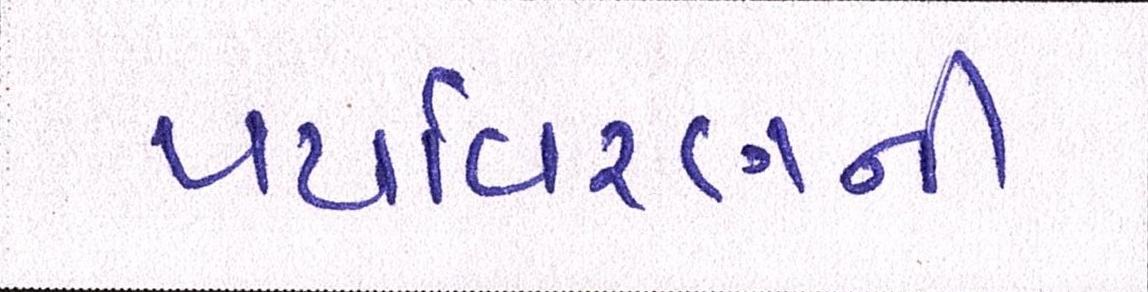 પર્યાવરણની